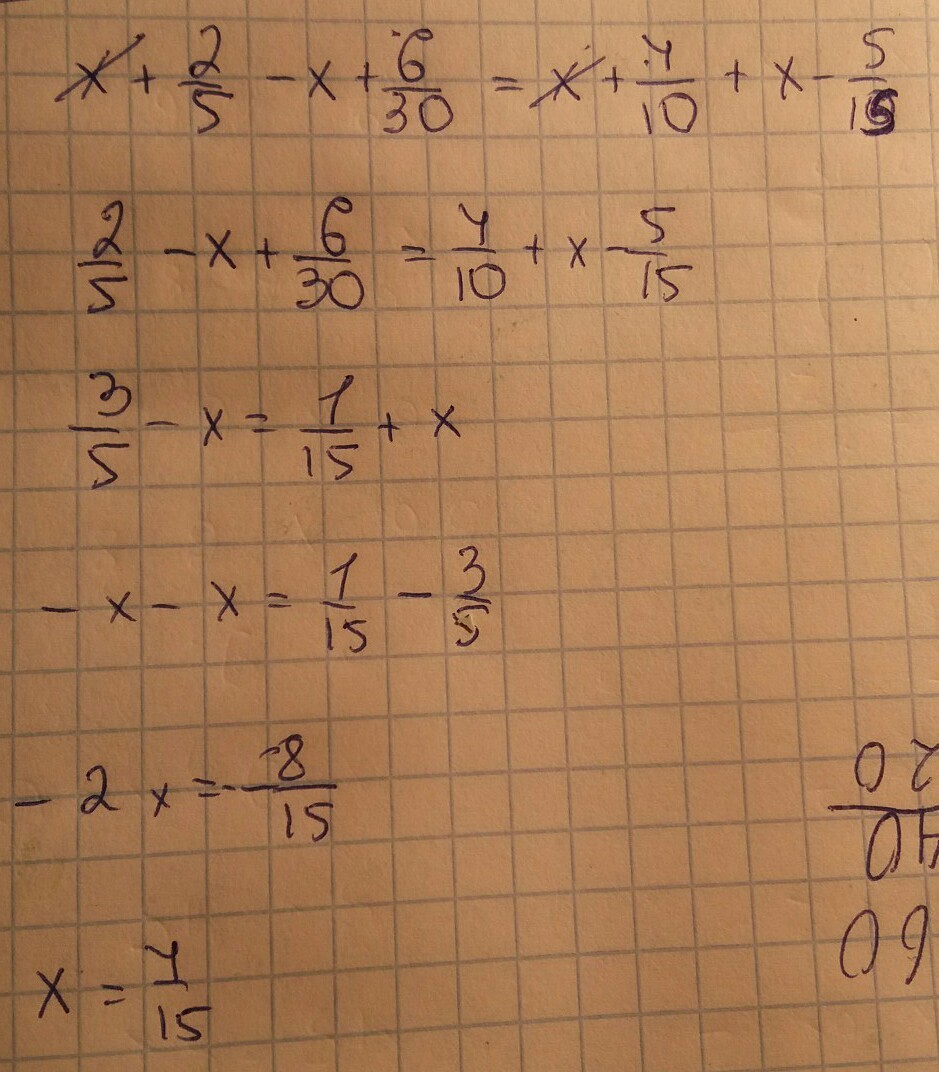 x + 2/5 - x + 6/30 = x + 4/10 + x - 5/15
2/5 - x + 6/30 = 4/10 + x - 5/15
3/5 - x = 1/15 + x
- x - x = 1/15 - 3/5
- 2x = - 8/15
x = 4/15